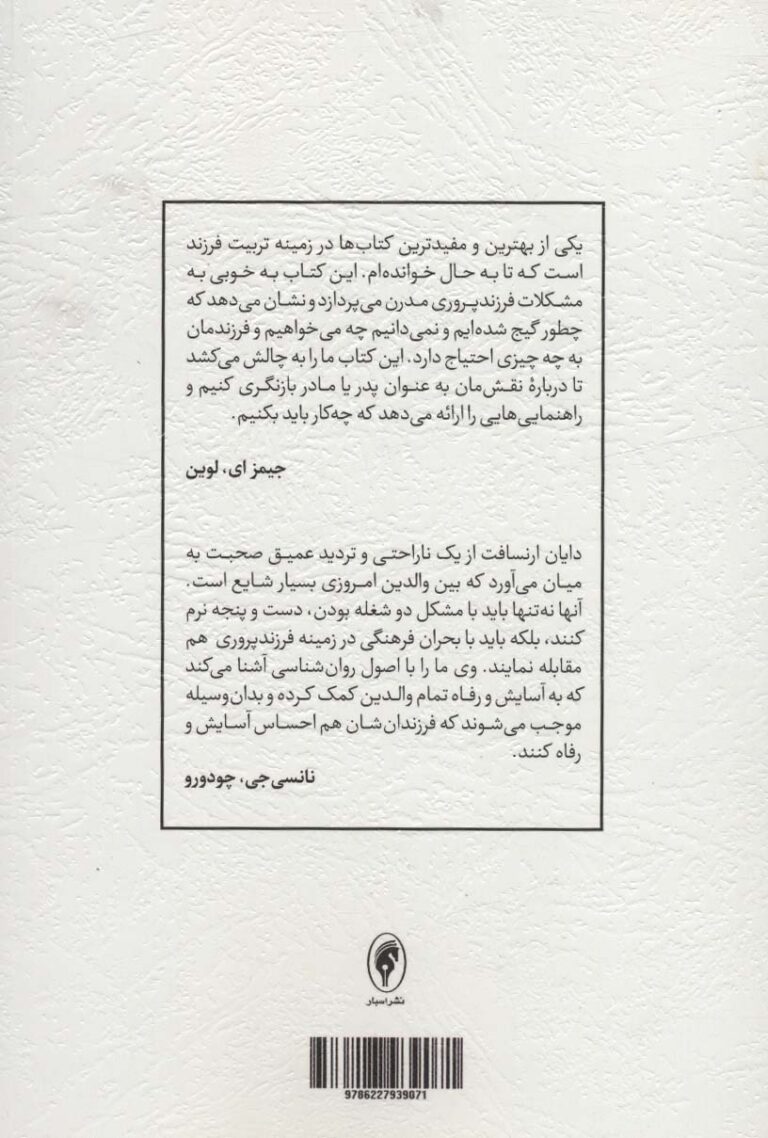 یکی از بهترین و مفیدترین کتاب‌ها در زمینه تربیت فرزند
است که تا به حال خوانده‌ام. این کتاب به خوبی به
مشکلات فرزندپروری مدرن می‌پردازد و نشان می‌دهد که
چطور گیج شده‌ایم و نمی‌دانیم چه می‌خواهیم و فرزندمان
به چه چیزی احتیاج دارد. این کتاب ما را به چالش می‌کشد
تا دربارهٔ نقش‌مان به عنوان پدر یا مادر بازنگری کنیم و
راهنمایی‌هایی را ارائه می‌دهد که چه‌کار باید بکنیم.
جیمز ای، لوین
دایان ارنسافت از یک ناراحتی و تردید عمیق صحبت به
میان می‌آورد که بین والدین امروزی بسیار شایع است.
آنها نه‌تنها باید با مشکل دو شغله بودن، دست و پنجه نرم
کنند، بلکه باید با بحران فرهنگی در زمینه فرزندپروری هم
مقابله نمایند. وی ما را با اصول روان‌شناسی آشنا می‌کند
که به آسایش و رفاه تمام والدین کمک کرده و بدان‌وسیله
موجب می‌شوند که فرزندان‌شان هم احساس آسایش و
رفاه کنند.
نانسی‌جی، چودورو
نشر اسبار
9786227939071